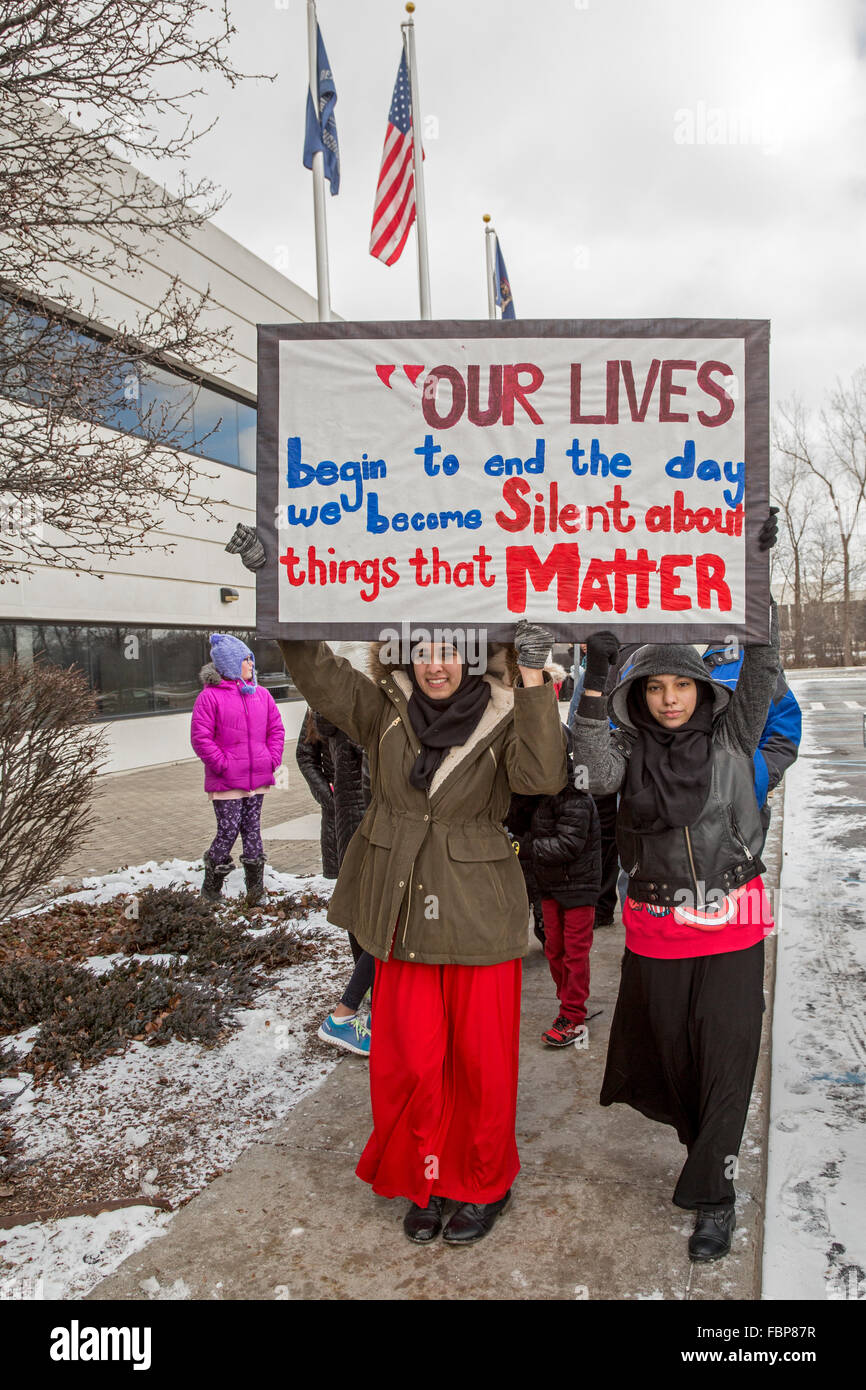 “OUR LIVES
begin to end the day
we become Silent about
things that MATTER
alamy stock photo
FBP87R
www.alamy.com